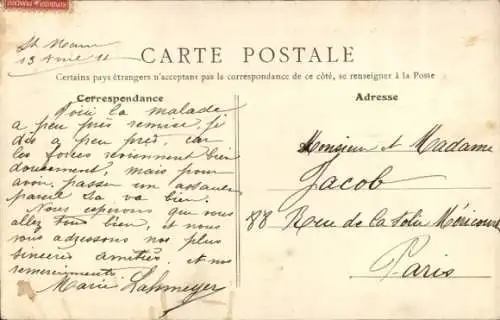 St Maur
13 Avril 11
CARTE POSTALE
Certains pays étrangers n'acceptant pas la correspondance de ce côté, se renseigner à la Poste
Correspondance
Voici la malade
a peu près remise, je
dis a peu près, car
les forces reviennent bien
doucement, mais pour
avoir passer un assaut
pareil ça va bien.
Nous espérons que vous
allez tous bien, et nous
vous adressons nos plus
sincères amitiés et nos
remerciments
Marie Lahmeyer
Adresse
Monsieur et Madame
Jacob
88 Rue de la Folie Méricourt
Paris